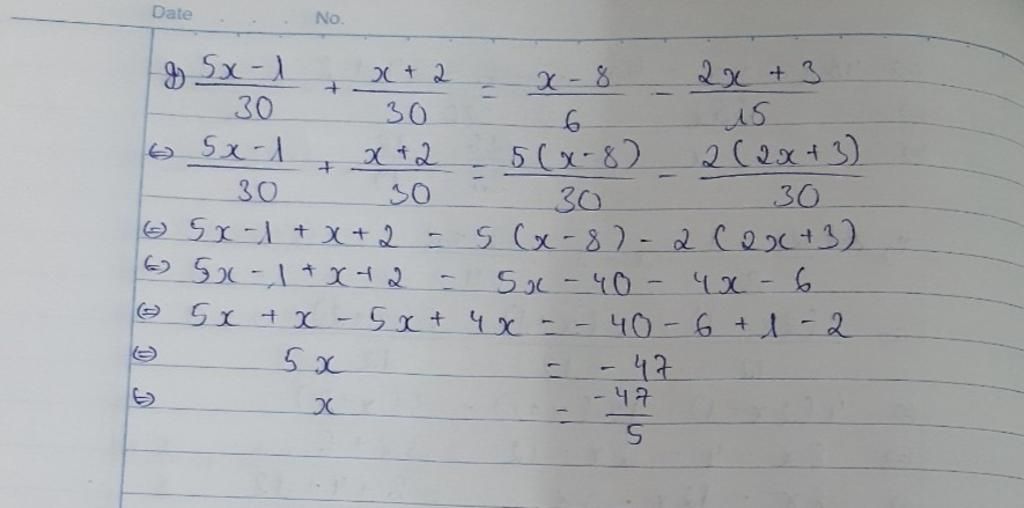 Date . . . No.
g) (5x - 1)/30 + (x + 2)/30 = (x - 8)/6 - (2x + 3)/15
⇔ (5x - 1)/30 + (x + 2)/30 = 5(x - 8)/30 - 2(2x + 3)/30
⇔ 5x - 1 + x + 2 = 5(x - 8) - 2(2x + 3)
⇔ 5x - 1 + x + 2 = 5x - 40 - 4x - 6
⇔ 5x + x - 5x + 4x = - 40 - 6 + 1 - 2
⇔ 5x = - 47
⇔ x = -47/5